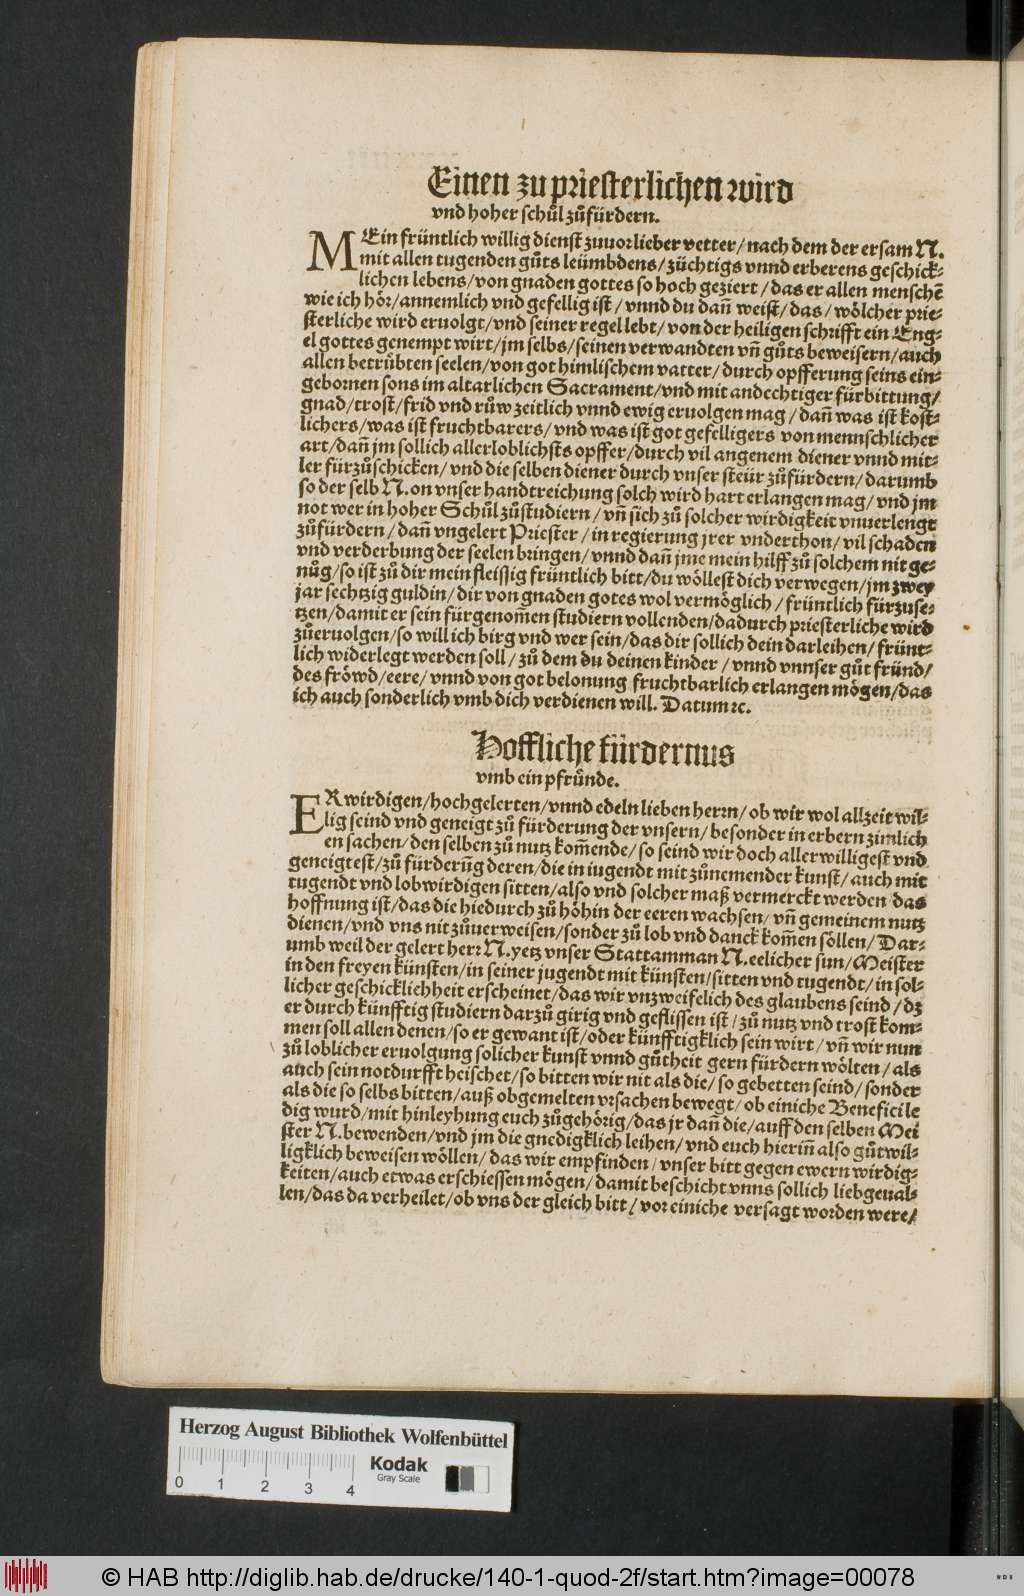 Einen zu priesterlichen wird
vnd hoher schůl zůfürdern.
MEin früntlich willig dienst zuuor lieber vetter/ nach dem der ersam N.
mit allen tugenden gůts leümbdens/ züchtigs vnnd erberens geschick⸗
lichen lebens/ von gnaden gottes so hoch geziert / das er allen menschē
wie ich hör/ annemlich vnd gefellig ist / vnnd du dañ weist/ das / wölcher prie⸗
sterliche wird eruolgt/ vnd seiner regel lebt/ von der heiligen schrifft ein Eng⸗
el gottes genempt wirt/ jm selbs/ seinen verwandten vñ gůts beweisern/ auch
allen betrübten seelen/ von got himlischem vatter/ durch opfferung seins ein⸗
gebornen sons im altarlichen Sacrament/ vnd mit andechtiger fürbittung/
gnad/ trost/ frid vnd růw zeitlich vnnd ewig eruolgen mag / dañ was ist kost⸗
lichers/ was ist fruchtbarers/ vnd was ist got gefelligers von mennschlicher
art/ dañ jm sollich allerloblichsts opffer/ durch vil angenem diener vnnd mit⸗
ler fürzůschicken/ vnd die selben diener durch vnser steür zůfürdern/ darumb
so der selb N. on vnser handtreichung solch wird hart erlangen mag/ vnd jm
not wer in hoher Schůl zůstudiern / vñ sich zů solcher wirdigkeit vnuerlengt
zůfürdern / dañ vngelert Priester / in regierung jrer vnderthon/ vil schaden
vnd verderbung der seelen bringen/ vnnd dañ jme mein hilff zů solchem nit ge⸗
nůg/ so ist zů dir mein fleissig früntlich bitt/ du wöllest dich verwegen/ jm zwey
jar sechtzig guldin/ dir von gnaden gotes wol vermöglich / früntlich fürzuse⸗
tzen/ damit er sein fürgenom̃en studiern vollenden/ dadurch priesterliche wird
zůeruolgen/ so will ich birg vnd wer sein/ das dir sollich dein darleihen/ frünt⸗
lich widerlegt werden soll / zů dem du deinen kinder / vnnd vnnser gůt fründ/
des fröwd/ eere/ vnnd von got belonung fruchtbarlich erlangen mögen/ das
ich auch sonderlich vmb dich verdienen will. Datum ꝛc.
Hoffliche fürdernus
vmb ein pfründe.
ERwirdigen/ hochgelerten/ vnnd edeln lieben herrn/ ob wir wol allzeit wil⸗
lig seind vnd geneigt zů fürderung der vnsern/ besonder in erbern zimlich
en sachen/ den selben zů nutz kom̃ende/ so seind wir doch allerwilligest vnd
geneigtest/ zů fürderūg deren/ die in iugendt mit zůnemender kunst/ auch mit
tugendt vnd lobwirdigen sitten/ also vnd solcher maß vermerckt werden das
hoffnung ist/ das die hiedurch zů höhin der eeren wachsen/ vñ gemeinem nutz
dienen/ vnd vns nit zůuerweisen/ sonder zů lob vnd danck kom̃en söllen/ Dar⸗
umb weil der gelert herr N. yetz vnser Stattamman N. eelicher sun/ Meister
in den freyen künsten/ in seiner jugendt mit künsten/ sitten vnd tugendt/ in sol⸗
licher geschickliehheit erscheinet/ das wir vnzweifelich des glaubens seind / dz
er durch künfftig studiern darzů girig vnd geflissen ist / zů nutz vnd trost kom⸗
men soll allen denen/ so er gewant ist/ oder künfftigklich sein wirt / vñ wir nun
zů loblicher eruolgung solicher kunst vnnd gůtheit gern fürdern wölten / als
auch sein notdurfft heischet/ so bitten wir nit als die/ so gebetten seind/ sonder
als die so selbs bitten/ auß obgemelten vrsachen bewegt/ ob einiche Benefici le
dig wurd/ mit hinleyhung euch zůgehörig/ das jr dañ die/ auff den selben Mei
ster N. bewenden/ vnd jm die gnedigklich leihen/ vnd euch hieriñ also gůtwil⸗
ligklich beweisen wöllen/ das wir empfinden/ vnser bitt gegen ewern wirdig⸗
keiten/ auch etwas erschiessen mögen/ damit beschicht vnns sollich liebgeual⸗
len/ das da verheilet/ ob vns der gleich bitt / vor einiche versagt worden were/
Herzog August Bibliothek Wolfenbüttel
Kodak
Gray Scale
0 1 2 3 4
© HAB http://diglib.hab.de/drucke/140-1-quod-2f/start.htm?image=00078